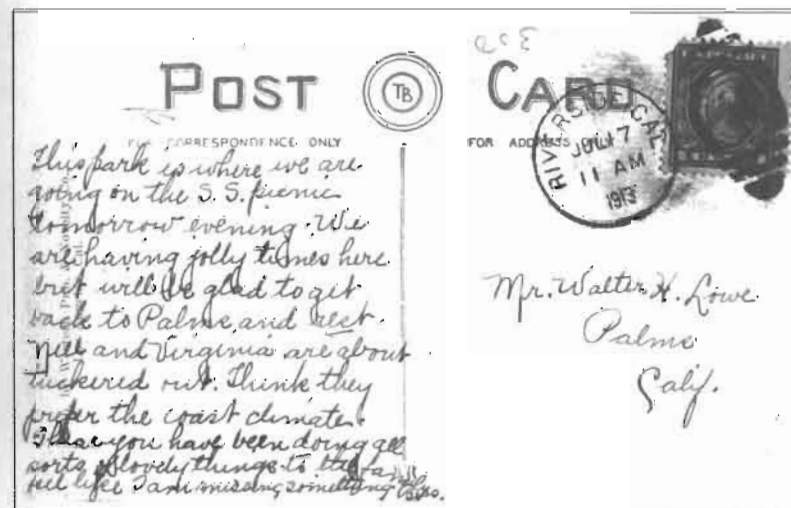 POST CARD
TB
FOR CORRESPONDENCE ONLY
FOR ADDRESS
RIVERSIDE, CAL.
JUL 17
11 AM
1913
This park is where we are
going on the S. S. picnic
tomorrow evening. We
are having jolly times here
but will be glad to get
back to Palms and rest.
Nell and Virginia are about
tuckered out. Think they
prefer the coast climate.
I hear you have been doing all
sorts of lovely things to the
feel like I am missing something
Mr. Walter H. Lowe
Palms
Calif.